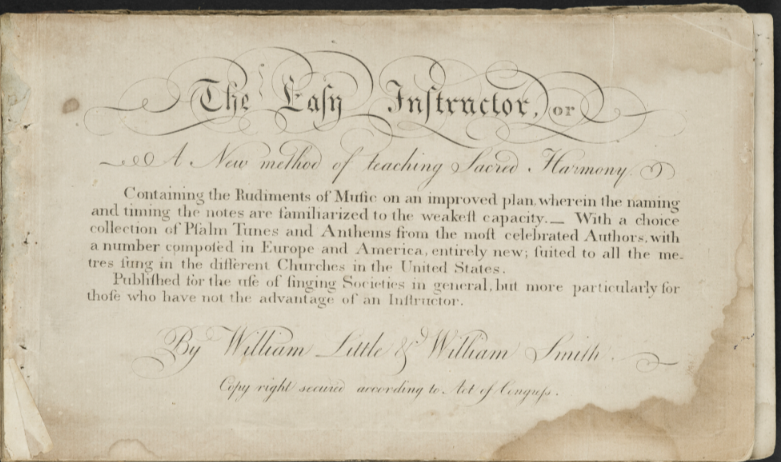 The Eaſy Inſtructor, or
A New method of teaching Sacred Harmony.
Containing the Rudiments of Muſic on an improved plan, wherein the naming
and timing the notes are familiarized to the weakeſt capacity. — With a choice
collection of Pſalm Tunes and Anthems from the moſt celebrated Authors, with
a number compoſed in Europe and America, entirely new; ſuited to all the me-
tres ſung in the different Churches in the United States.
Publiſhed for the uſe of ſinging Societies in general, but more particularly for
thoſe who have not the advantage of an Inſtructor.
By William Little & William Smith.
Copy right secured according to Act of Congreſs.